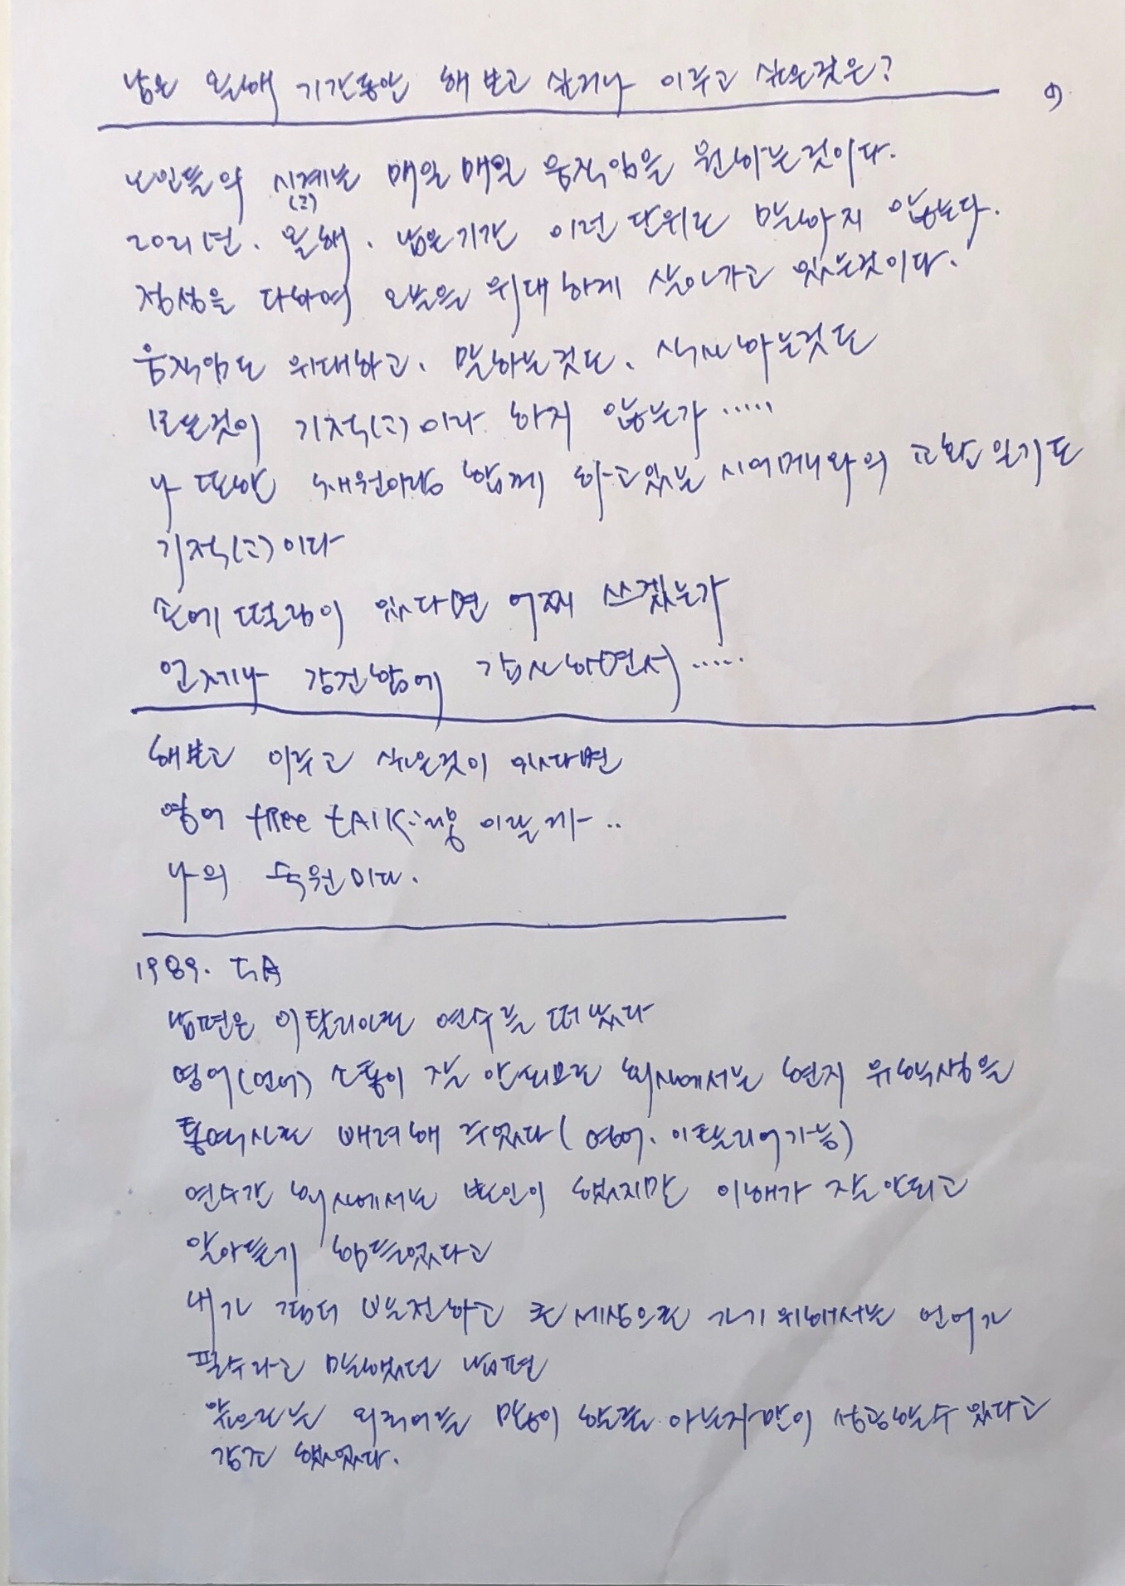 남은 올해 기간동안 해 보고 싶거나 이루고 싶은것은?
노인들의 시계는 매일 매일 움직임을 원하는것이다.
(고)
2021년. 올해. 남은기간 이런 단위로 말하지 않는다.
정성을 다하여 오늘을 위대하게 살아가고 있는것이다.
움직임도 위대하고. 말하는것도. 식사하는것도
모든것이 기적(고)이라 하지 않는가 .....
나 또한 새원이랑 함께 하고있는 시어머니와의 교환 일기도
기적(고)이다
손에 떨림이 있다면 어찌 쓰겠는가
언제나 강건함에 감사하면서 .....
해보고 이루고 싶은것이 있다면
영어 free talk 이랄까 ..
나의 숙원이다.
1989.
남편은 이탈리아로 연수를 떠났다
영어(언어) 소통이 잘 안되므로 회사에서는 현지 유학생을
통역사로 배려해 주었다 (영어. 이탈리어가능)
연수간 회사에서는 본인이 했지만 이해가 잘안되고
알아듣기 힘들었다고
내가 좀더 발전하고 큰 세상으로 가기위해서는 언어가
필수라고 말했던 남편
앞으로는 외국어를 많이 할줄 아는자 만이 성공할수 있다고
강조 했었다.